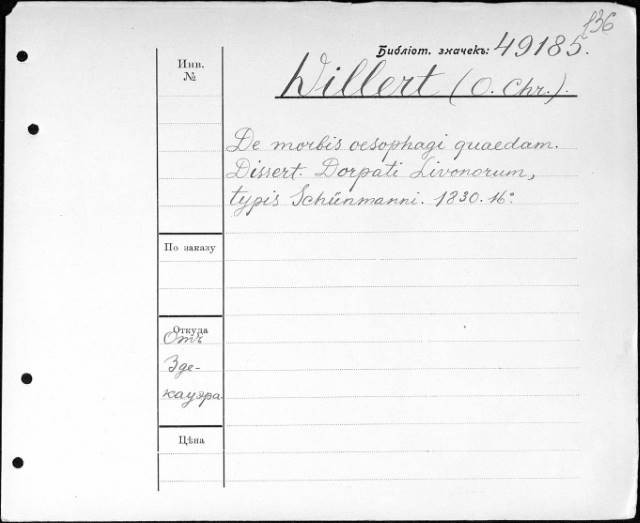 136
Библіот. значекъ: 49185.
Инв.
№
Willert (O. Chr.).
De morbis oesophagi quaedam.
Dissert. Dorpati Livonorum,
typis Schünmanni. 1830. 16°.
По заказу
Откуда
Отъ
Зде-
кауэра.
Цѣна